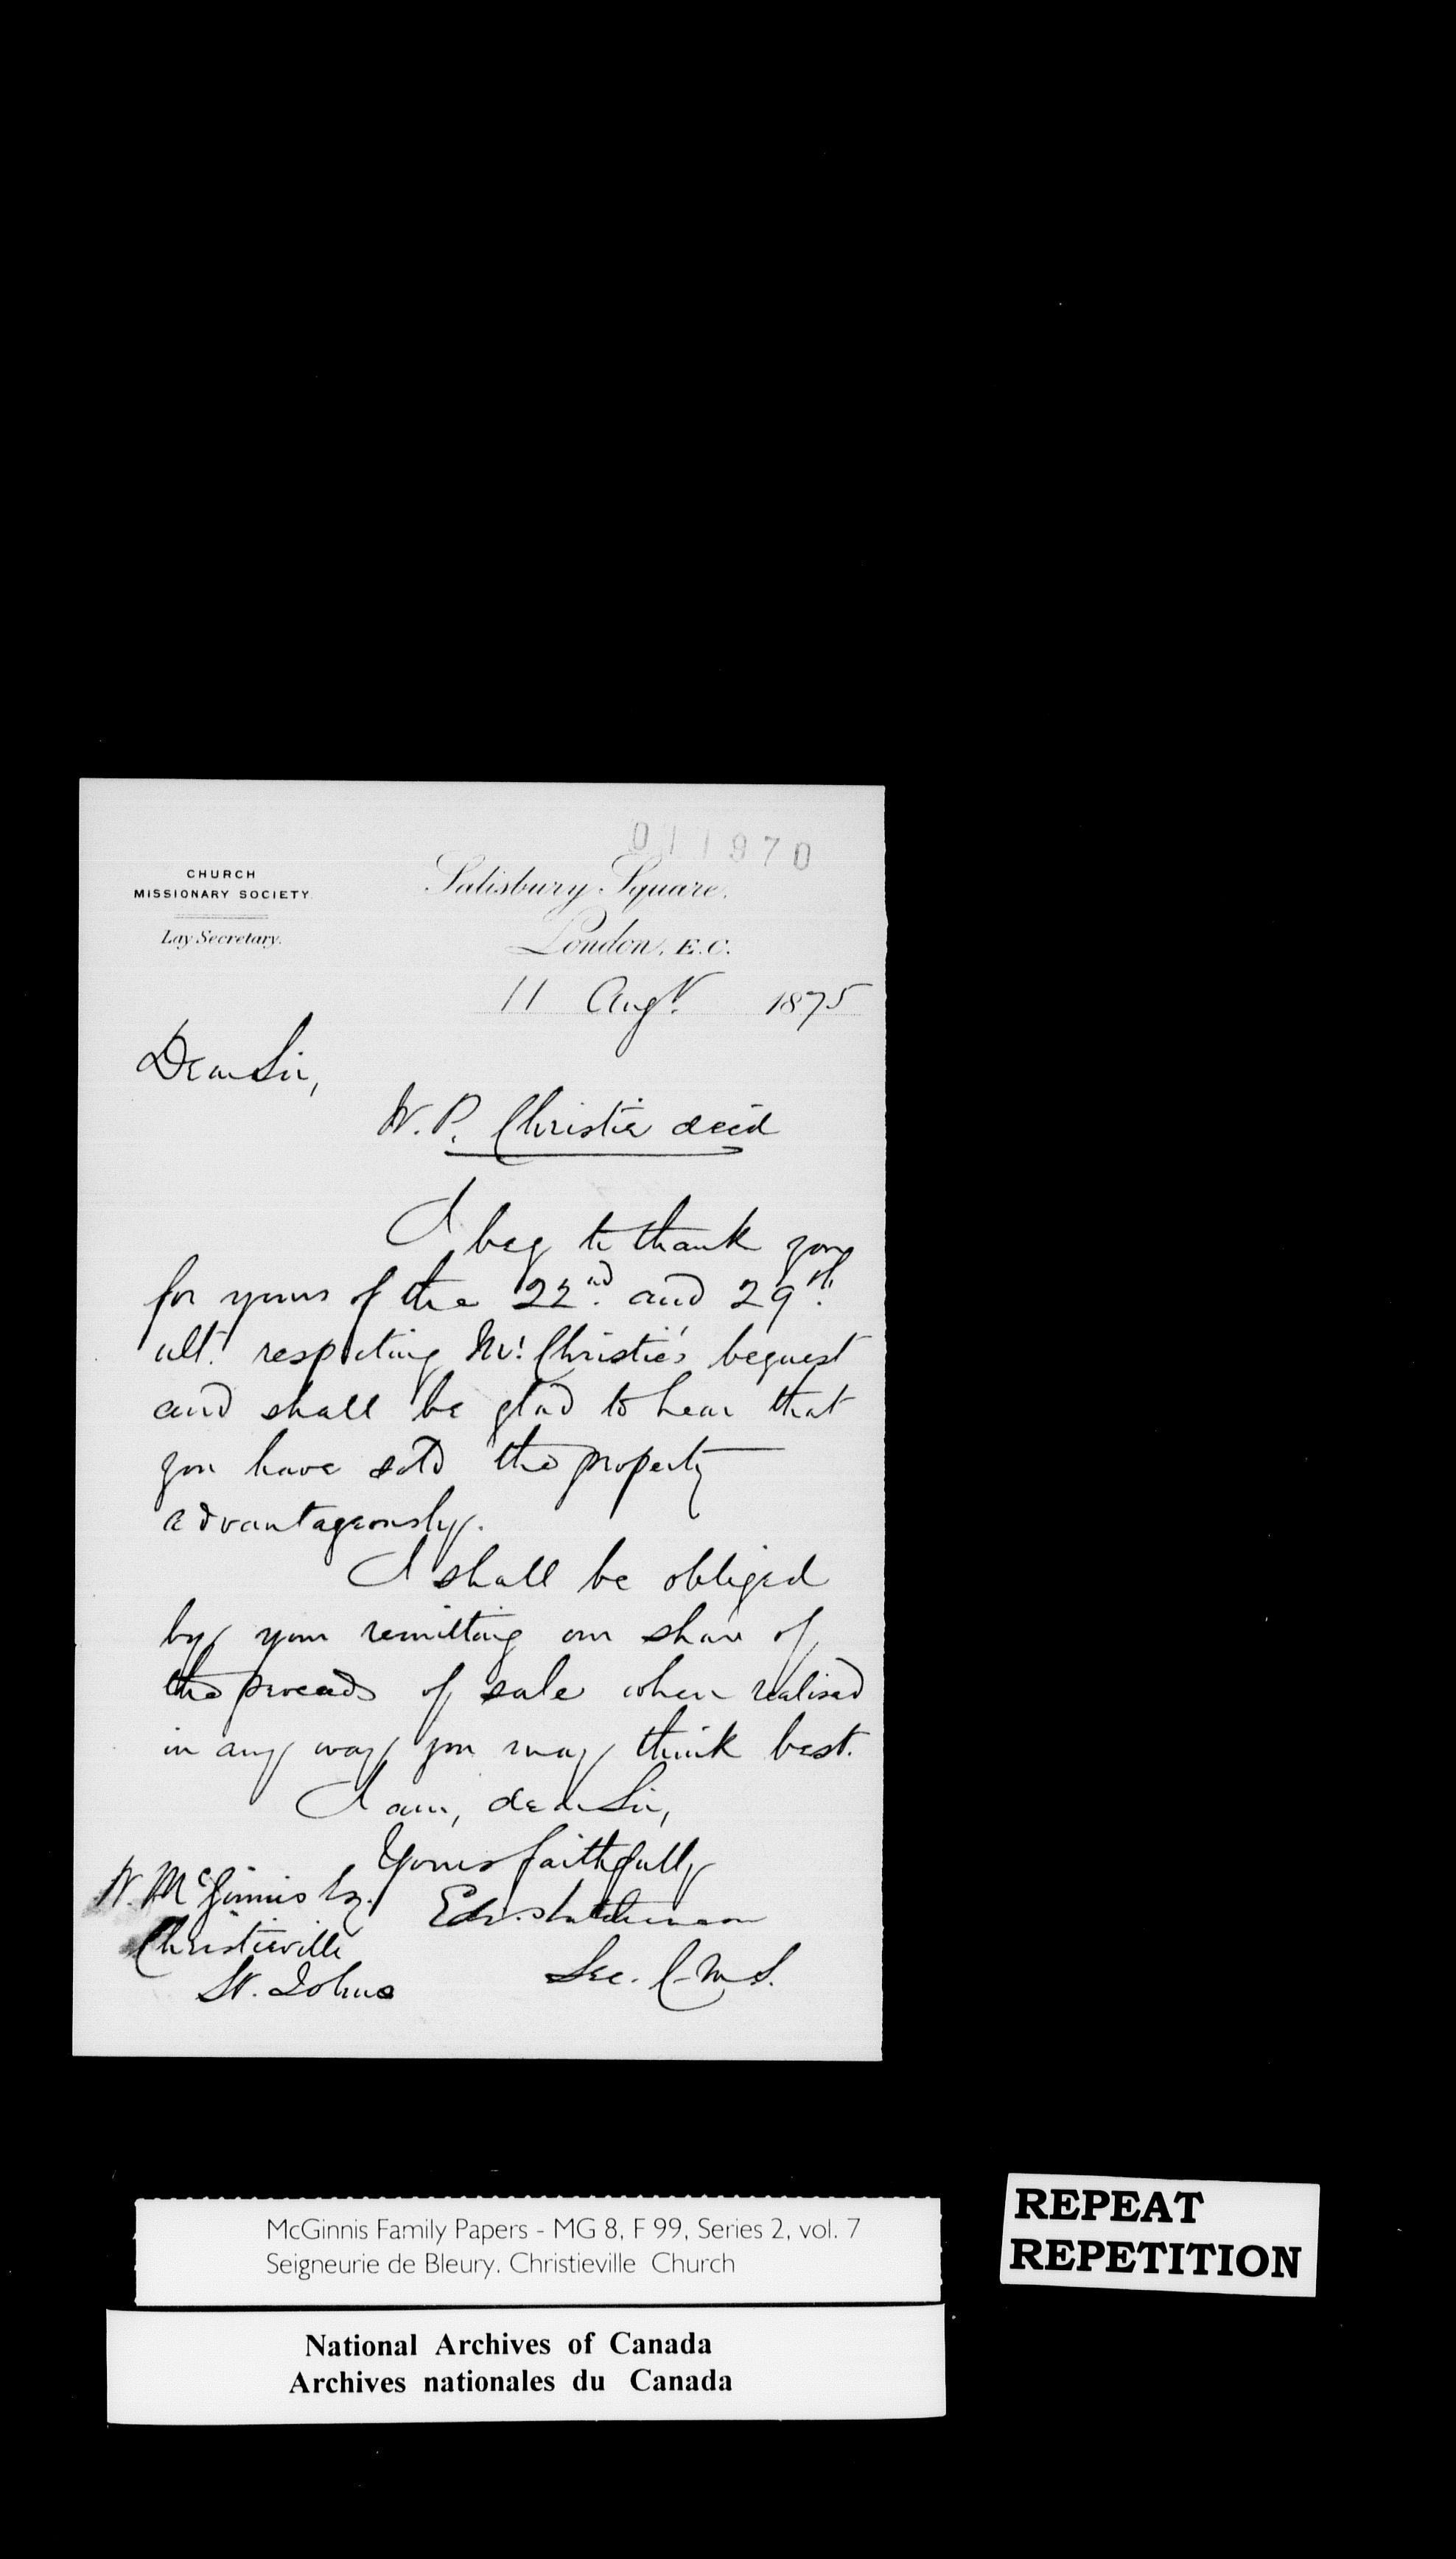 011970
CHURCH
MISSIONARY SOCIETY.
Lay Secretary.
Salisbury Square,
London, E.C.
11 Augt. 1875
Dear Sir,
W. P. Christie decd
I beg to thank you
for yours of the 22nd. and 29th.
ult. respecting Mr. Christie's bequest
and shall be glad to hear that
you have sold the property
advantageously.
I shall be obliged
by your remitting our share of
the proceeds of sale when realised
in any way you may think best.
I am, dear Sir,
Yours faithfully
Edw. Hutchinson
Sec. C.M.S.
W. McGinnis Esq.
Christieville
St. Johns
McGinnis Family Papers - MG 8, F 99, Series 2, vol. 7
Seigneurie de Bleury. Christieville Church
REPEAT
REPETITION
National Archives of Canada
Archives nationales du Canada